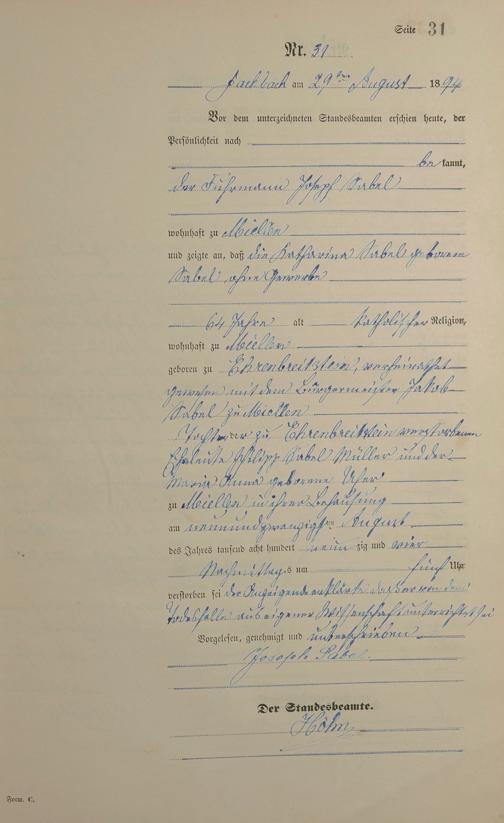 Seite 31
Nr. 31
Fachbach am 29ten August 1894
Vor dem unterzeichneten Standesbeamten erschien heute, der
Persönlichkeit nach
be kannt,
der Fuhrmann Joseph Sabel
wohnhaft zu Miellen
und zeigte an, daß die Katharina Sabel geborene
Sabel ohne Gewerbe
64 Jahre alt katholischer Religion,
wohnhaft zu Miellen
geboren zu Ehrenbreitstein, verheirathet
gewesen mit dem Bürgermeister Jakob
Sabel zu Miellen
Tochter der zu Ehrenbreitstein verstorbenen
Eheleute Philipp Sabel Müller und der
Maria Anna geborene
zu Miellen in ihrer Behausung
am neunundzwanzigsten August
des Jahres tausend acht hundert neun zig und vier
Nachmittags um fünf Uhr
verstorben sei der Anzeigende erklärte daß er von dem
Todesfalle aus eigener Wissenschaft unterrichtet sei
Vorgelesen, genehmigt und unterschrieben
Joseph Sabel
Der Standesbeamte.
Höhn
Form. C.